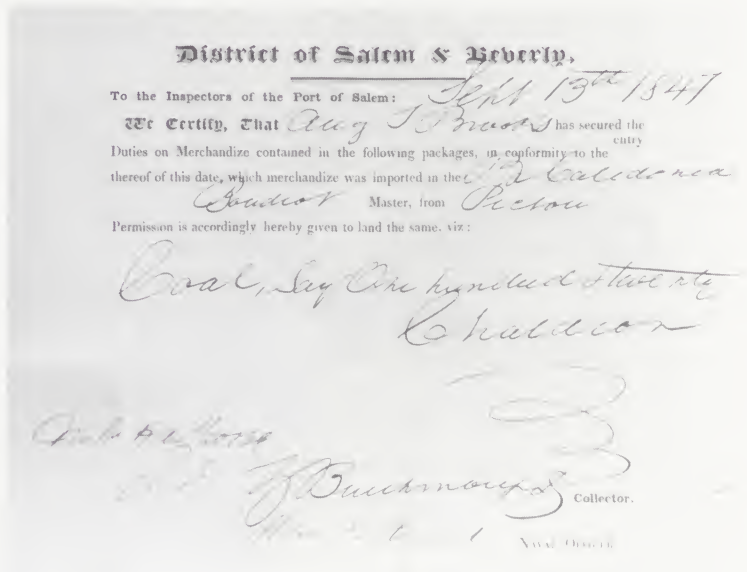 District of Salem & Beverly.
To the Inspectors of the Port of Salem: Sept 13th 1847
We Certify, That Aug T Brooks has secured the
entry
Duties on Merchandize contained in the following packages, in conformity to the
thereof of this date, which merchandize was imported in the Caledonia
Boudrot Master, from Pictou
Permission is accordingly hereby given to land the same, viz:
Coal, Say One hundred & twenty
Chaldron
Collector.
Naval Officer.